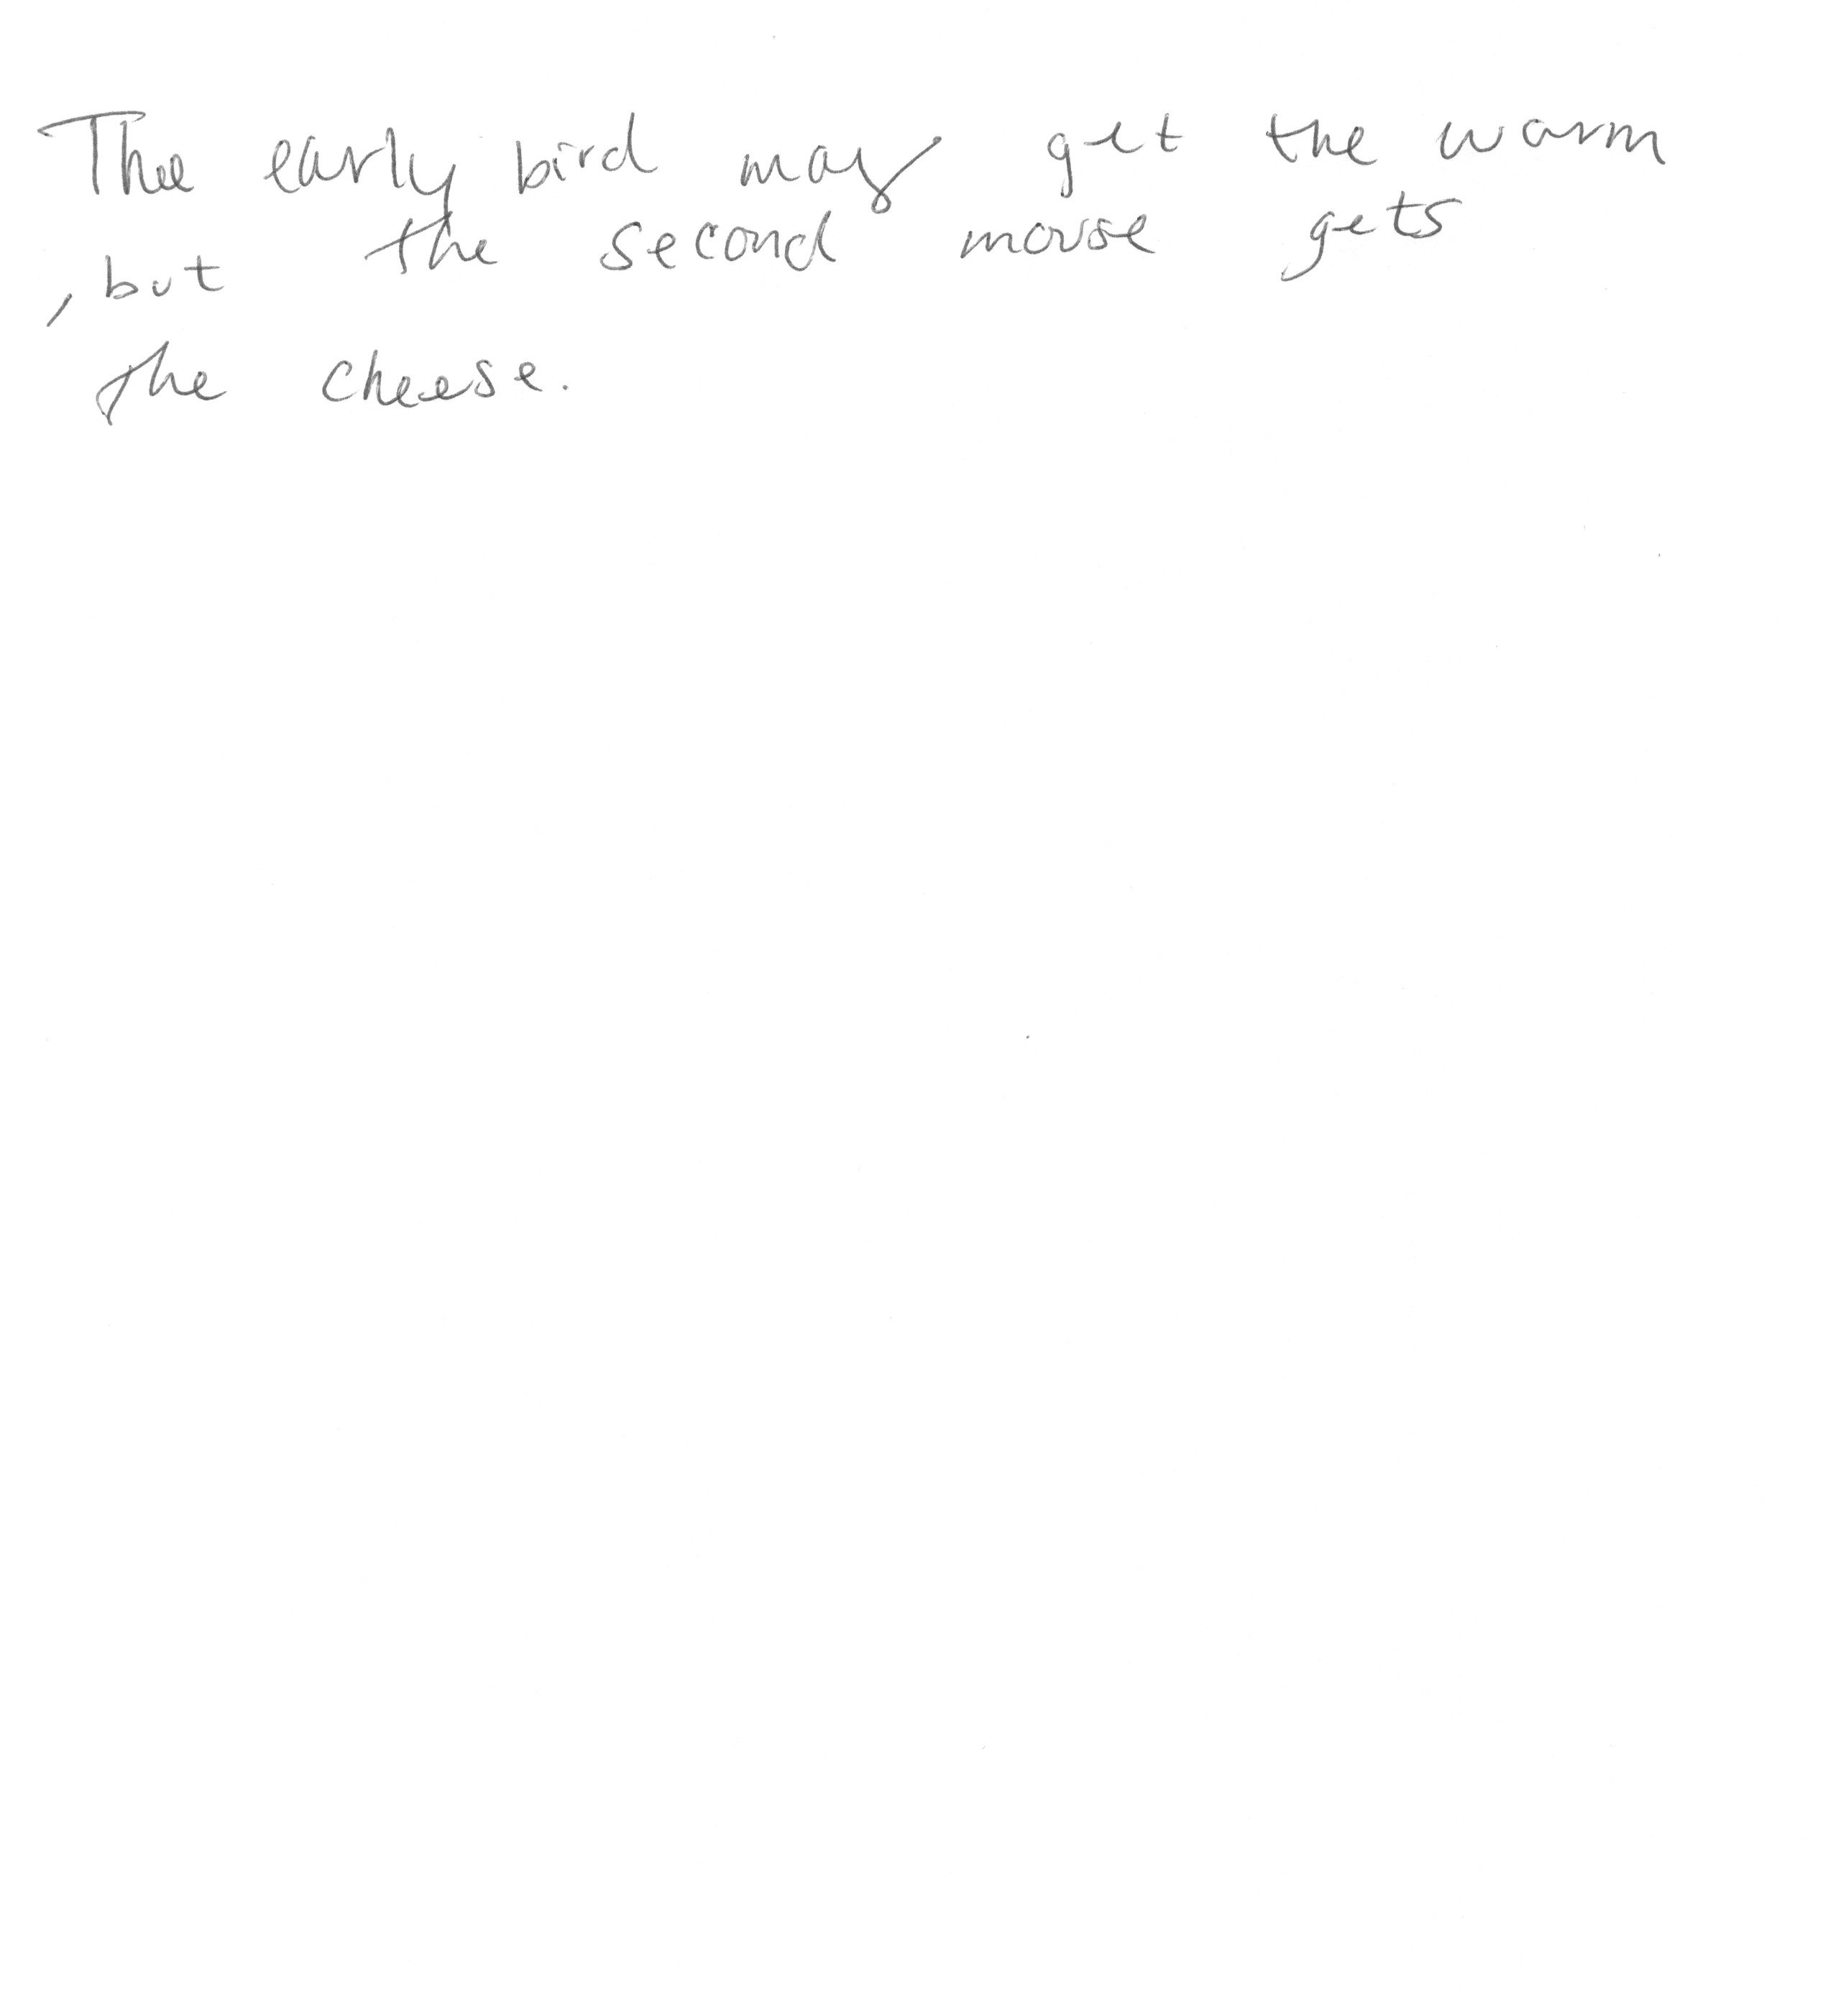 The early bird may get the warm
, but the second mouse gets
the cheese.